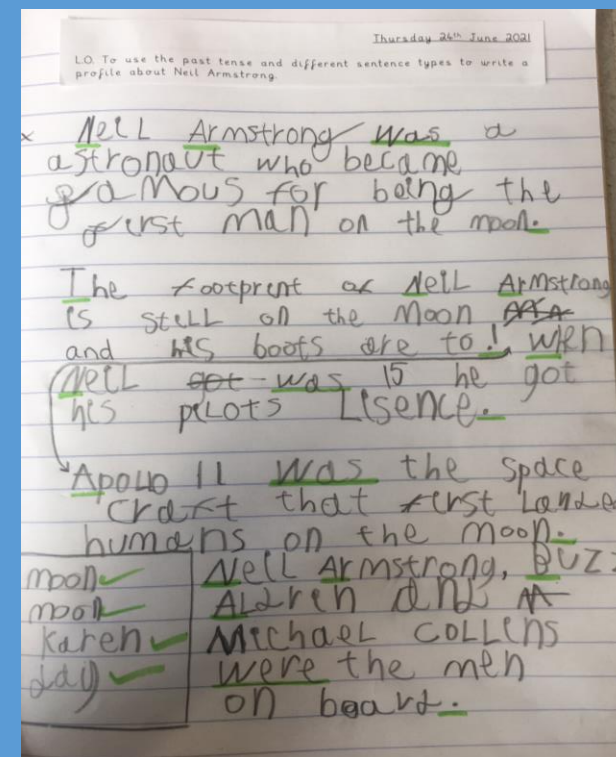 Thursday 24th June 2021
L.O. To use the past tense and different sentence types to write a
profile about Neil Armstrong.
x Neil Armstrong was a
astronaut who became
famous for being the
first man on the moon.
The footprint of Neil Armstrong
is still on the Moon
and his boots are to! when
Neil got was 15 he got
his pilots Lisence.
Apollo 11 was the space
craft that first Lande
humans on the moon.
Neil Armstrong, Buzz
Aldren and
Michael Collins
were the men
on board.
moon
moon
Karen
day